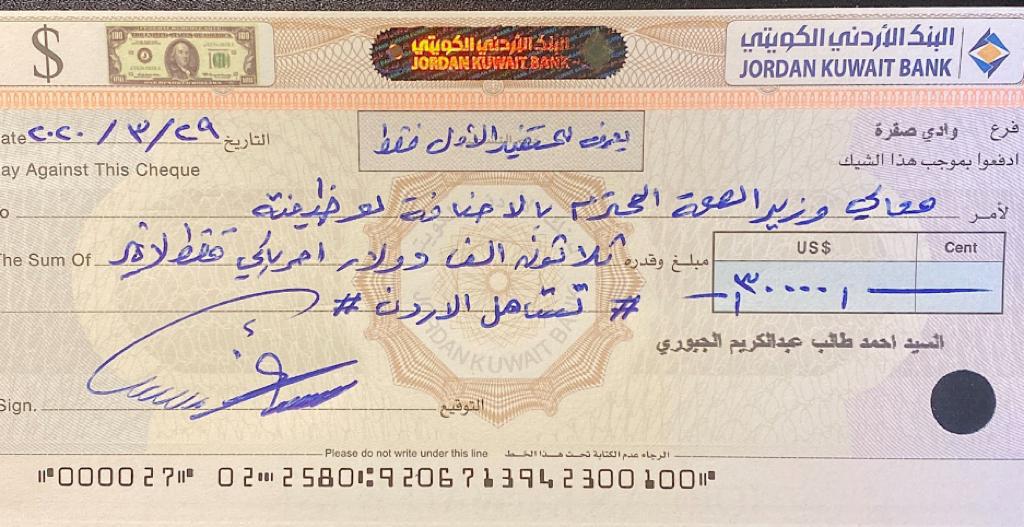 $
البنك الأردني الكويتي
JORDAN KUWAIT BANK
البنك الأردني الكويتي
JORDAN KUWAIT BANK
ate ٢٠٢٠ / ٣ / ٢٩ التاريخ
يصرف للمستفيد الأول فقط
فرع وادي صقرة
ay Against This Cheque
ادفعوا بموجب هذا الشيك
o معالي وزير الصحة المحترم بالاضافة لوظيفته لأمر
he Sum Of ثلاثون الف دولار امريكي فقط لاغير مبلغ وقدره
US$ Cent
٣٠٠٠٠
# تستاهل الاردن #
السيد احمد طالب عبدالكريم الجبوري
Sign. التوقيع
Please do not write under this line الرجاء عدم الكتابة تحت هذا الخط
⑈000027⑈ 02⑉2580⑆9206713942300100⑈